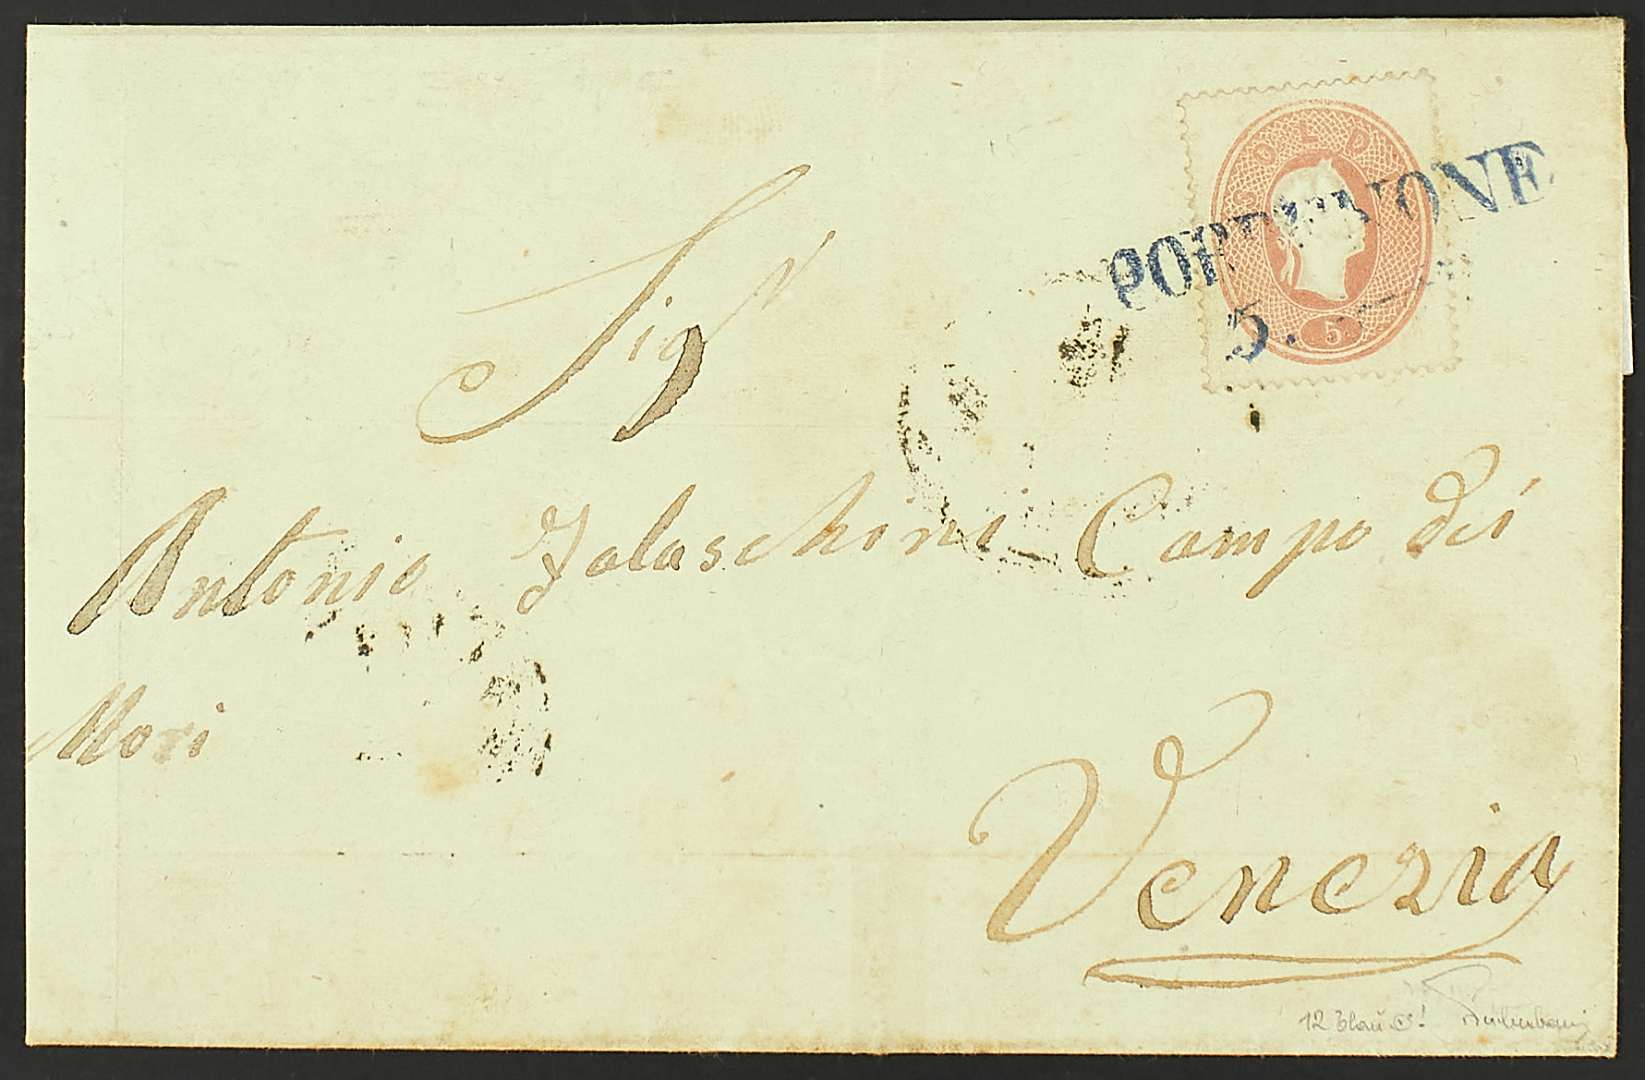 SOLD
PORDENONE
5.
5
Sigr
Antonio Zalaschini Campo dei
Mori
Venezia
12 blau